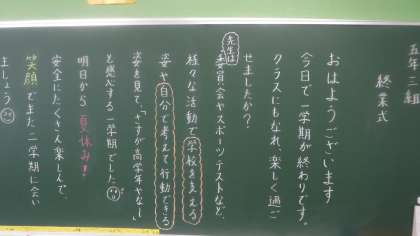 五年三組
終業式
おはようございます
今日で一学期が終わりです。
クラスにもなれ、楽しく過ご
せましたか?
先生は
委員会やスポーツテストなど、
様々な活動で学校を支える
姿や自分で考えて行動できる
姿を見て、「さすが高学年やな。」
と感心する一学期でした
明日から夏休み!
安全にたくさん楽しんで、
笑顔でまた二学期に会い
ましょう